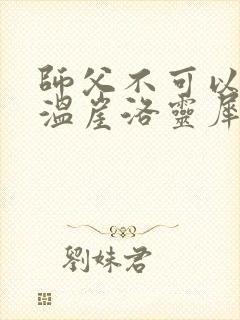 師父不可以
溫崖洛靈犀
劉妹君